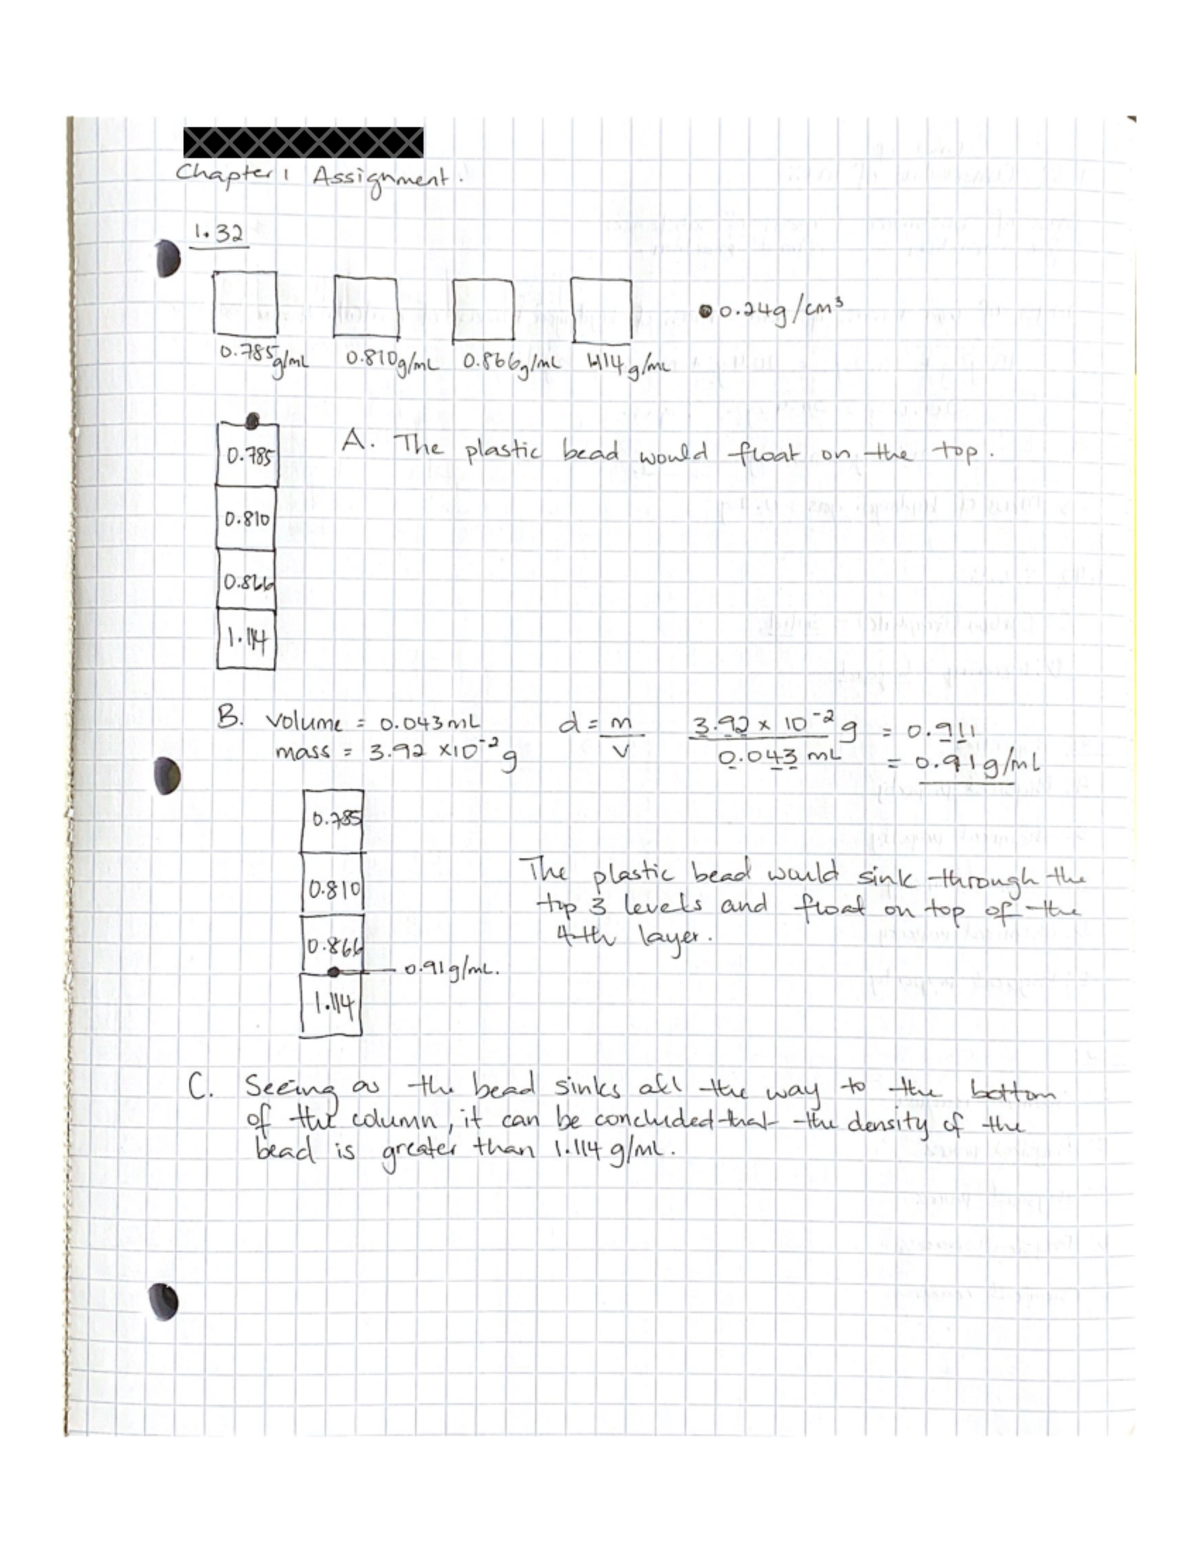 Chapter 1 Assignment.
1.32
0.24g/cm³
0.785g/mL 0.810g/mL 0.866g/mL 1.114g/mL
0.785
A. The plastic bead would float on the top.
0.810
0.866
1.114
B. volume = 0.043mL d = m/v 3.92 x 10⁻² g / 0.043 mL = 0.911
mass = 3.92 x10⁻² g = 0.91g/mL
0.785
0.810
The plastic bead would sink through the
top 3 levels and float on top of the
4th layer.
0.866
0.91g/mL.
1.114
C. Seeing as the bead sinks all the way to the bottom
of the column, it can be concluded that the density of the
bead is greater than 1.114 g/mL.